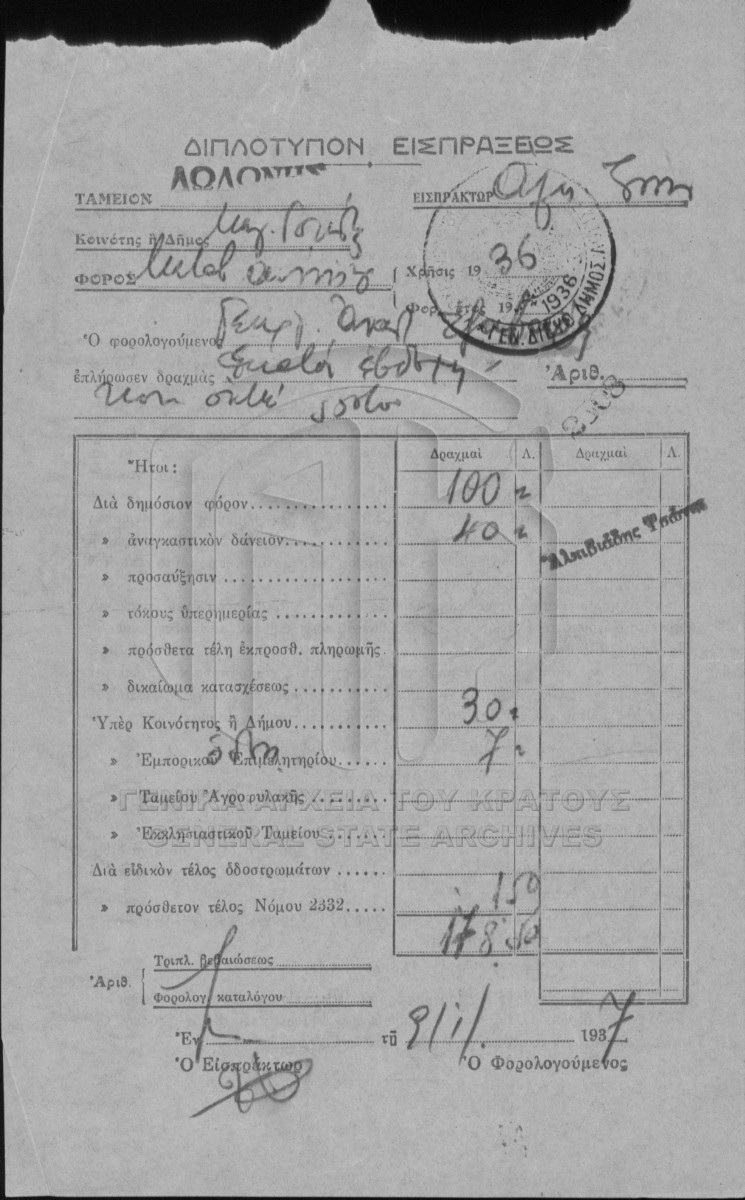 ΔΙΠΛΟΤΥΠΟΝ ΕΙΣΠΡΑΞΕΩΣ
ΤΑΜΕΙΟΝ ΔΩΔΩΝΗΣ
ΕΙΣΠΡΑΚΤΩΡ
Κοινότης ἢ Δῆμος
ΦΟΡΟΣ
Χρῆσις 19 36
Φορ. ἔτος 19
1936
ΓΕΝ. ΔΙΕΥΘ. ΔΗΜΟΣ.
Ὁ φορολογούμενος Γεωργ.
ἐπλήρωσεν δραχμὰς Ἑκατὸν ἑβδομή
κοντα ὀκτώ
Ἀριθ.
Ἤτοι :
Δραχμαὶ Λ. Δραχμαὶ Λ.
Διὰ δημόσιον φόρον 100
» ἀναγκαστικὸν δάνειον 40
Ἀλκιβιάδης
» προσαύξησιν
» τόκους ὑπερημερίας
» πρόσθετα τέλη ἐκπροσθ. πληρωμῆς
» δικαίωμα κατασχέσεως
Ὑπὲρ Κοινότητος ἢ Δήμου 30
» Ἐμπορικοῦ Ἐπιμελητηρίου 7
» Ταμείου Ἀγροφυλακῆς
» Ἐκκλησιαστικοῦ Ταμείου
ΓΕΝΙΚΑ ΑΡΧΕΙΑ ΤΟΥ ΚΡΑΤΟΥΣ
GENERAL STATE ARCHIVES
Διὰ εἰδικὸν τέλος ὁδοστρωμάτων
» πρόσθετον τέλος Νόμου 2332 1 50
178 50
Ἀριθ.
Τριπλ. βεβαιώσεως
Φορολογ. καταλόγου
Ἐν τῇ 9/1/ 1937
Ὁ Εἰσπράκτωρ Ὁ Φορολογούμενος